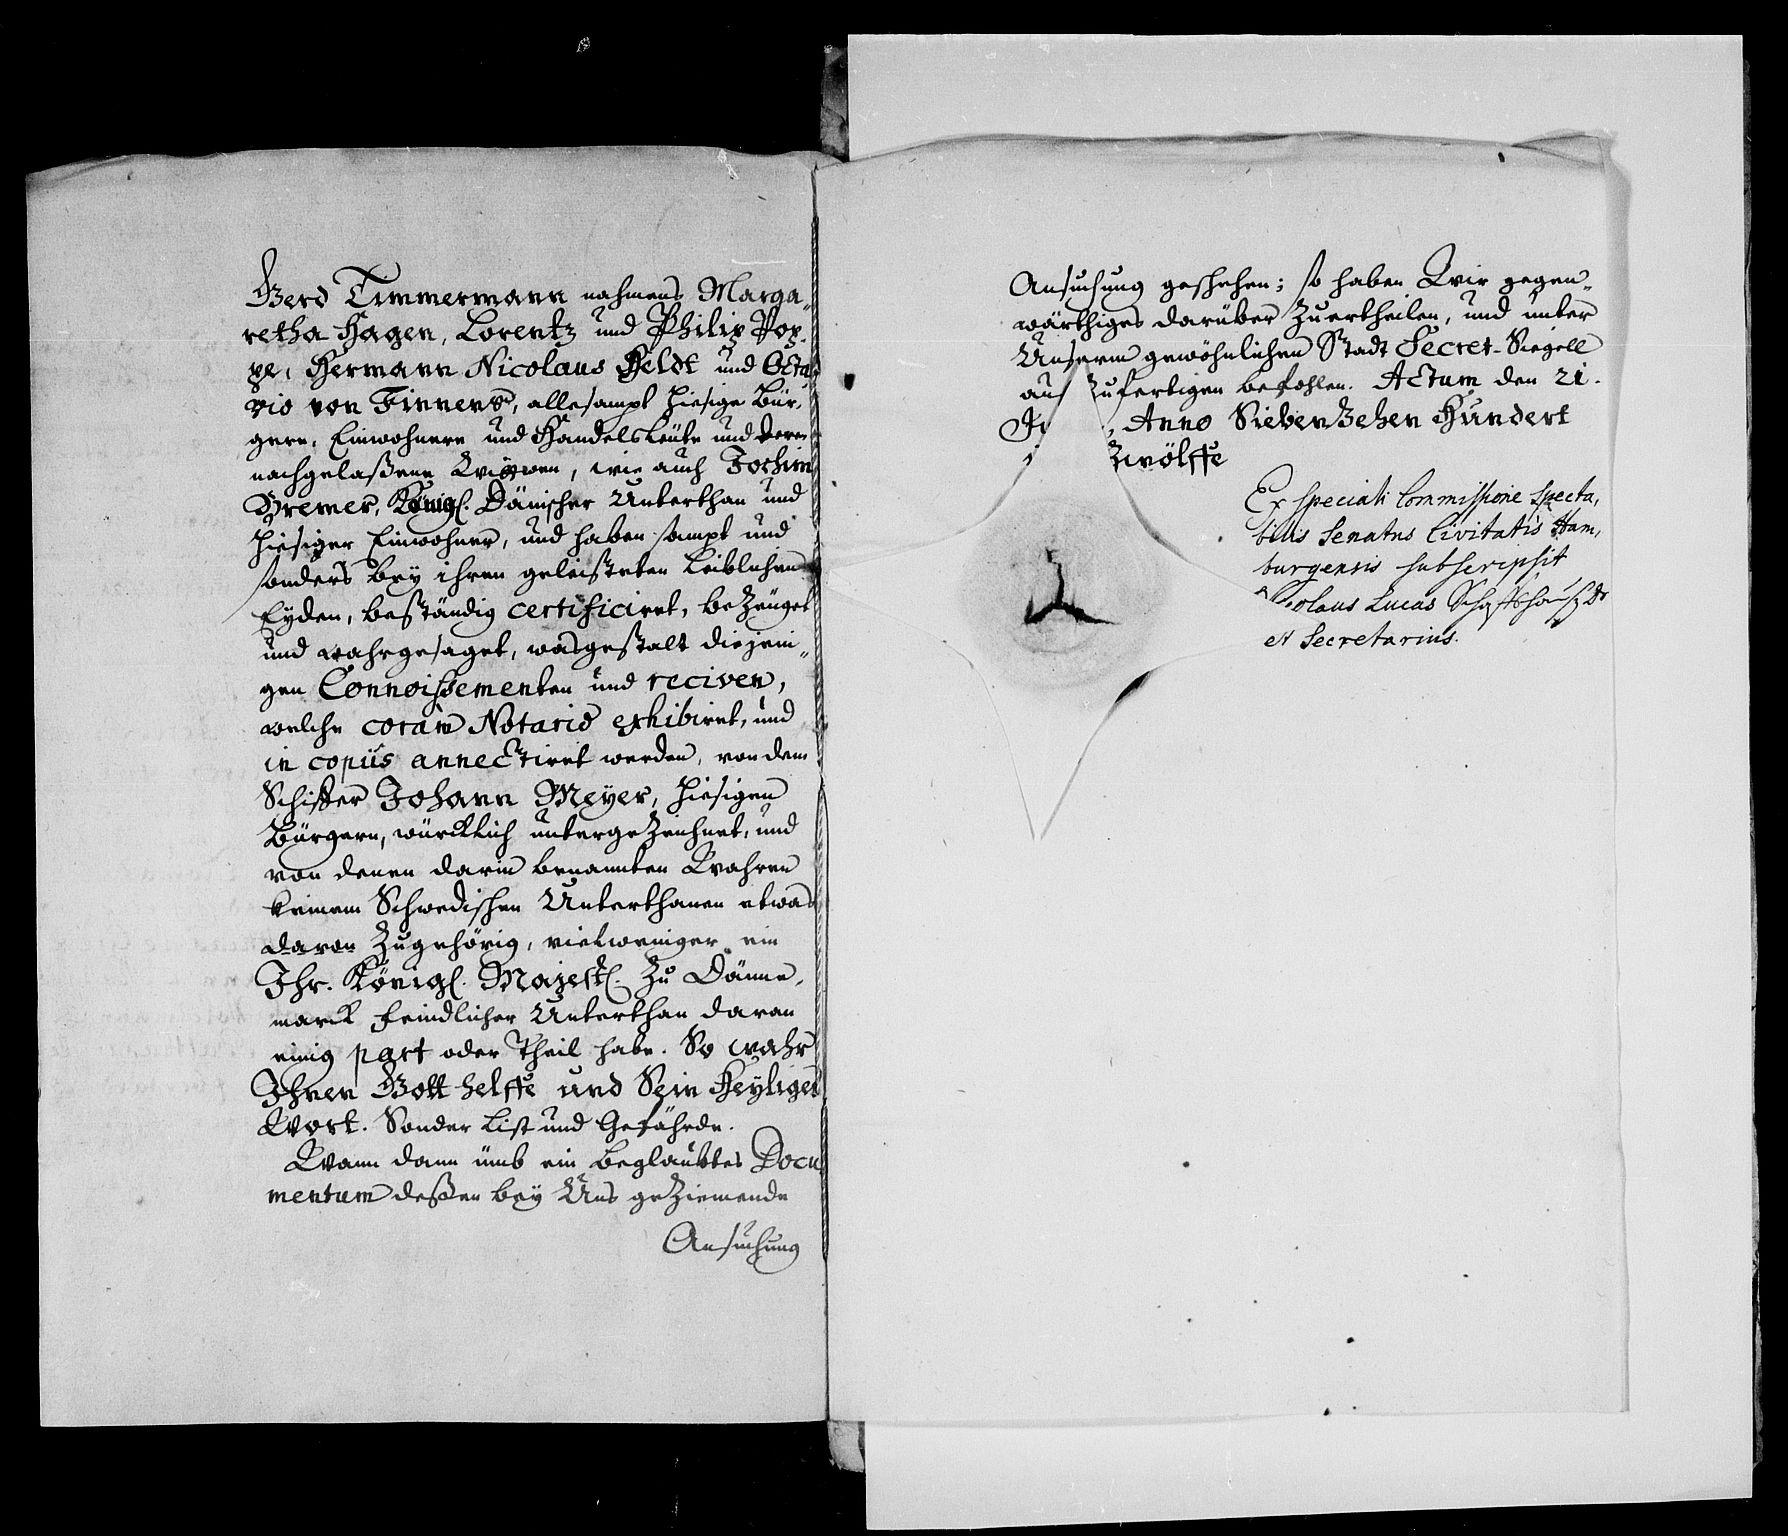 Gerd Timmermann nahmens Marga„
retha Hagen, Lorentz und Philip Pop„
pe, Hermann Nicolaus Heldt und Octa„
vio von Finnens, allesampt hiesige Bür„
gere, Einwohnere und Handelsleüte und deren
nachgelaßene Wittwen, wie auch Jochim
Bremer, Königl. Dänischer Unterthan und
hiesiger Einwohner, und haben sampt und
sonders bey ihren geleisteten Leiblichen
Eyden, beständig certificiret, bezeüget
und wahrgesaget, wasgestalt diejeni„
gen Connoissementen und reciven,
welche coram Notario exhibiret, und
in copiis annectiret werden, von dem
Schiffer Johann Meyer, hiesigen
Bürgern, würcklich untergezeichnet, und
von denen darin benannten Wahren
keinem Schwedischen Unterthanen etwas
davon zugehörig, vielweniger ein
Ihr. Königl. Majestl. zu Dänne„
marck feindlicher Unterthan daran
einig part oder Theil habe. So wahr
Ihnen Gott helffe und Sein Heyliges
Wort. Sonder List und Gefährde.
Wann dann ümb ein beglaubtes Docu„
mentum deßen bey Uns geziemende
Ansuchung
Ansuchung geschehen; so haben Wir gegen„
wärthiges darüber zuertheilen, und unter
Unserm gewöhnlichen Stadt Secret-Siegell
aus zufertigen befohlen. Actum den 21.
Anno Siebenzehen Hundert
zwölffe
Ex speciali Commissione Specta„
bilis Senatus Civitatis Ham„
burgensis subscripsit
Nicolaus Lucas Schaffshausz Dr
et Secretarius.